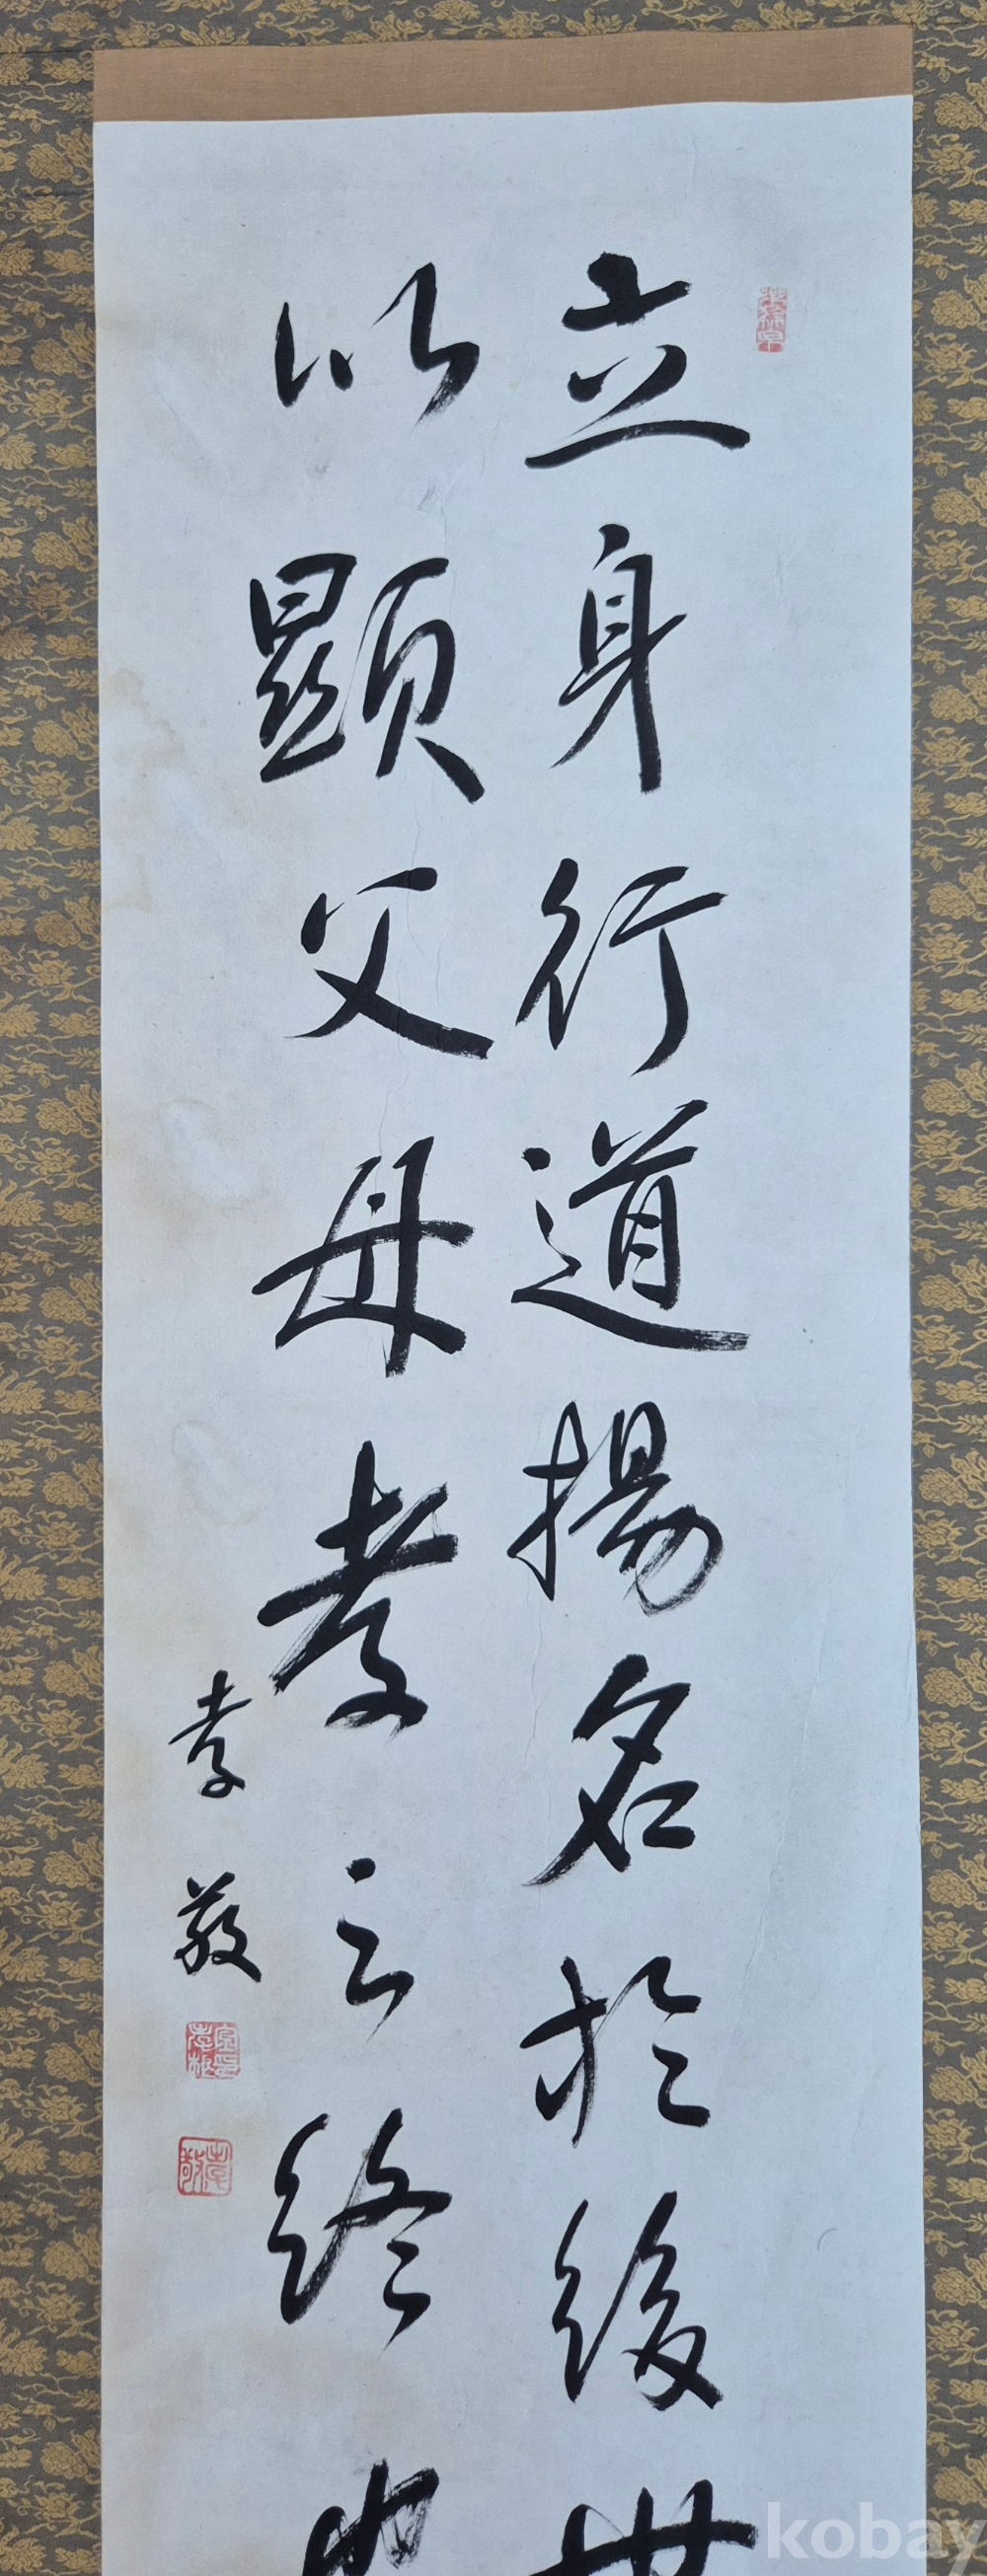 立身行道揚名於後世
以顯父母孝之終也
孝敬
孝敬
kobay